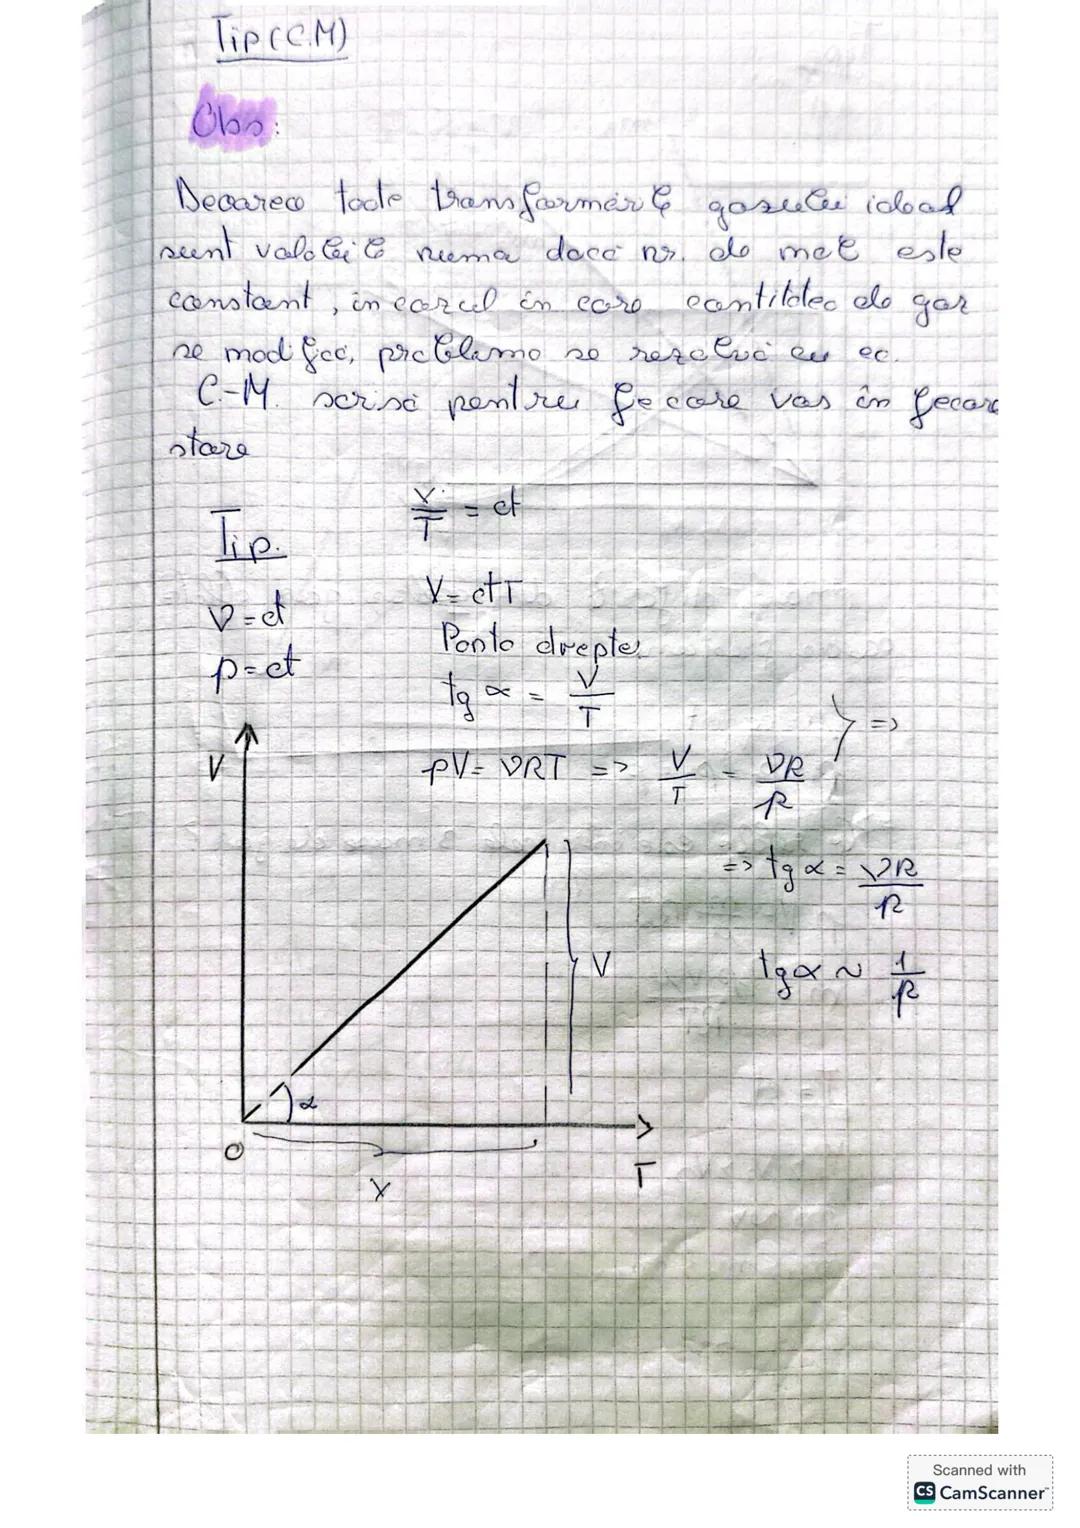 Tip(C.M)
Obs:
Deoarece toate transformările gazului ideal
sunt valabile numa dacă nr. de mol este
constant, în cazul în care cantitatea de gaz
se modifică, problema se rezolvă cu ec.
C.-M. scrisă pentru fecare vas în fecare
stare
Tip.
V/T = ct
ν=ct
V=ctT
p=ct
Panta dreptei
tg α = V/T
} =>
pV=νRT => V/T = νR/p
V
=> tg α = νR/p
V
tgα ~ 1/p
α
O
T